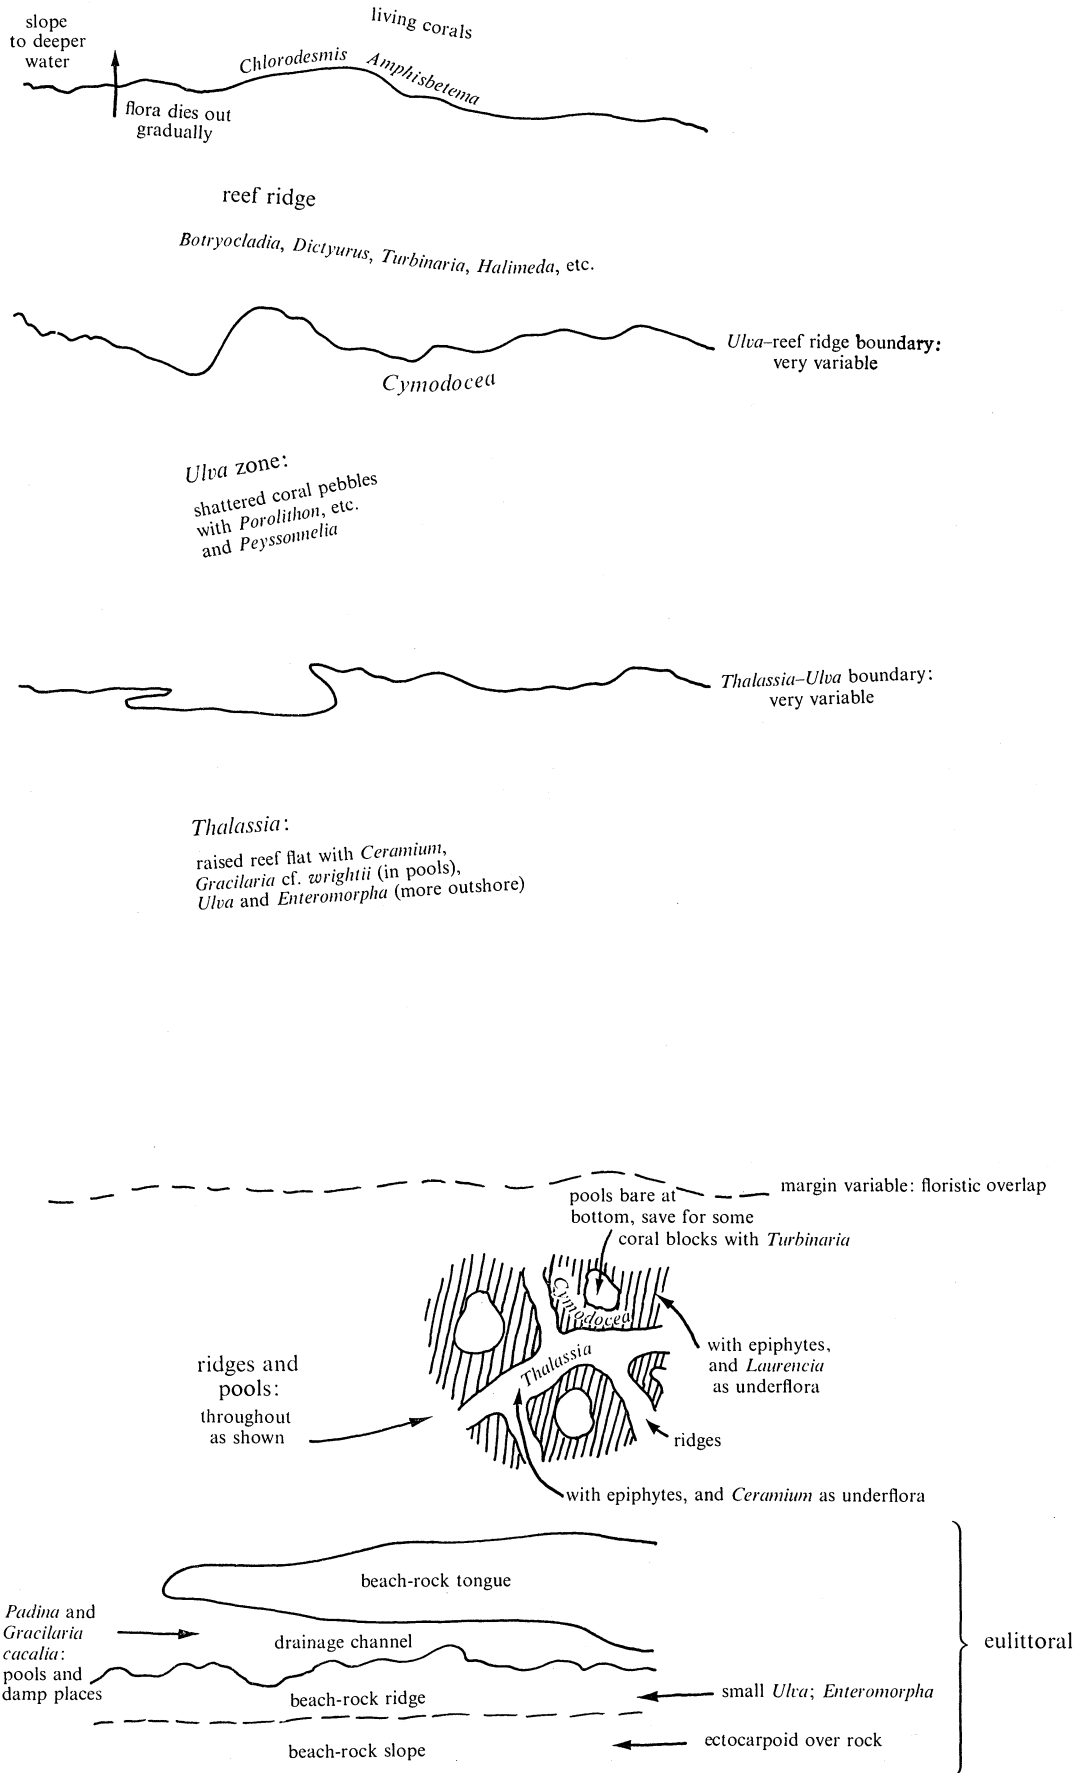 slope
to deeper
water
living corals
Chlorodesmis
Amphisbetema
flora dies out
gradually
reef ridge
Botryocladia, Dictyurus, Turbinaria, Halimeda, etc.
Ulva–reef ridge boundary:
very variable
Cymodocea
Ulva zone:
shattered coral pebbles
with Porolithon, etc.
and Peyssonnelia
Thalassia–Ulva boundary:
very variable
Thalassia:
raised reef flat with Ceramium,
Gracilaria cf. wrightii (in pools),
Ulva and Enteromorpha (more outshore)
margin variable: floristic overlap
pools bare at
bottom, save for some
coral blocks with Turbinaria
Cymodocea
with epiphytes,
and Laurencia
as underflora
Thalassia
ridges and
pools:
throughout
as shown
ridges
with epiphytes, and Ceramium as underflora
beach-rock tongue
Padina and
Gracilaria
cacalia:
pools and
damp places
drainage channel
eulittoral
beach-rock ridge
small Ulva; Enteromorpha
beach-rock slope
ectocarpoid over rock